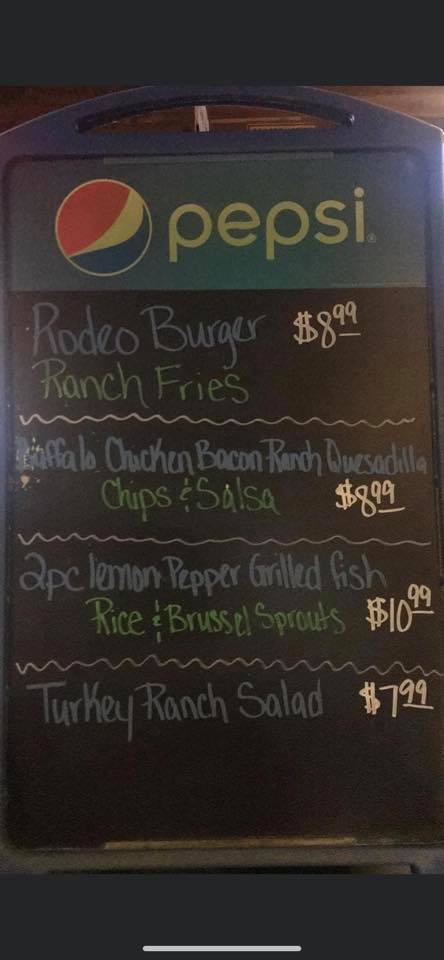 pepsi
Rodeo Burger $8.99
Ranch Fries
Buffalo Chicken Bacon Ranch Quesadilla
Chips & Salsa $8.99
2pc lemon Pepper Grilled fish
Rice & Brussel Sprouts $10.99
Turkey Ranch Salad $7.99